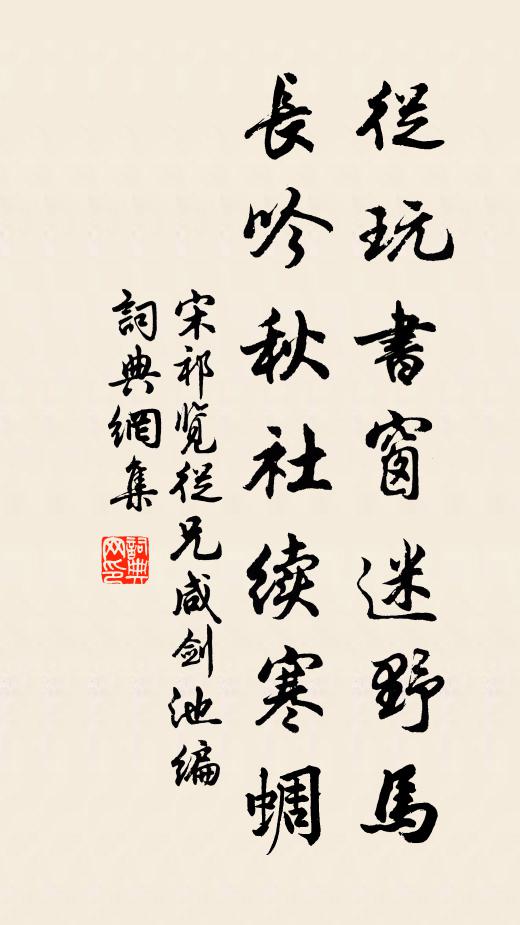 從玩書窗迷野馬
長吟秋社续寒蜩
宋祁覽從兄咸劍池編
詞典網集
詞典网印